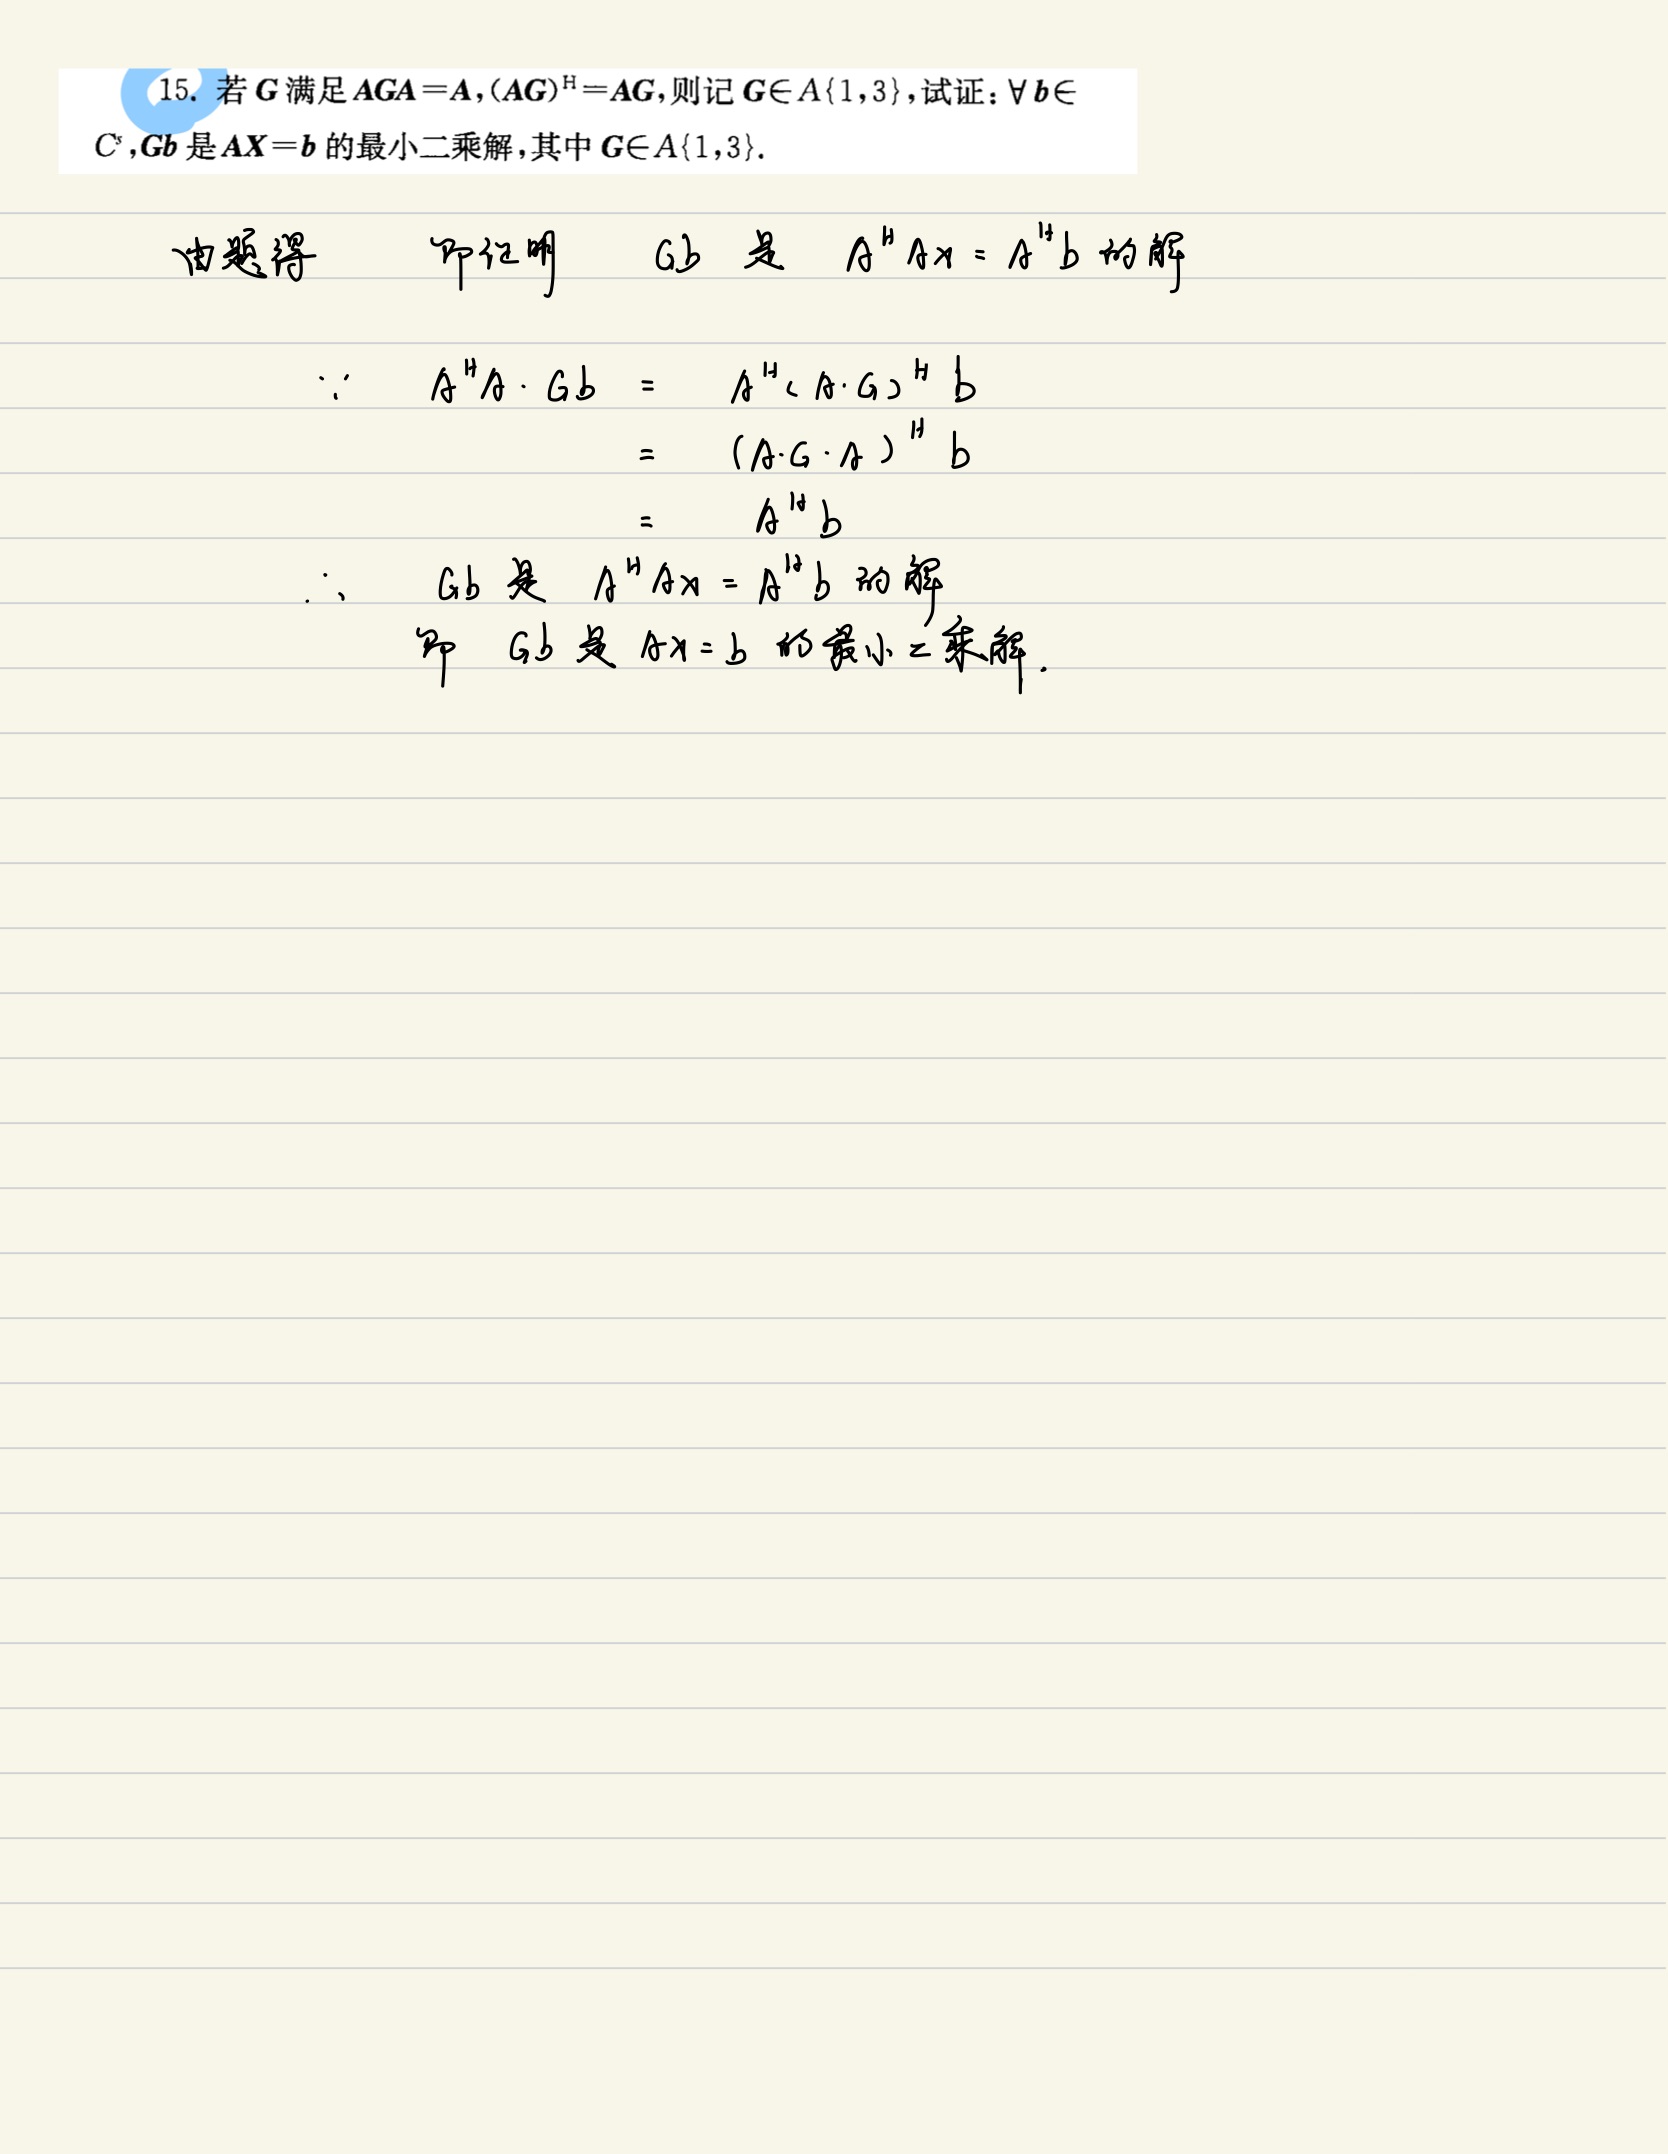 15. 若 G 满足 AGA=A,(AG)ᴴ=AG,则记 G∈A{1,3},试证:∀ b∈
Cˢ,Gb 是 AX=b 的最小二乘解,其中 G∈A{1,3}.
由题得 即证明 Gb 是 AᴴAx = Aᴴb 的解
∵ AᴴA·Gb = Aᴴ(A·G)ᴴ b
= (A·G·A)ᴴ b
= Aᴴb
∴ Gb 是 AᴴAx = Aᴴb 的解
即 Gb 是 Ax=b 的最小二乘解.